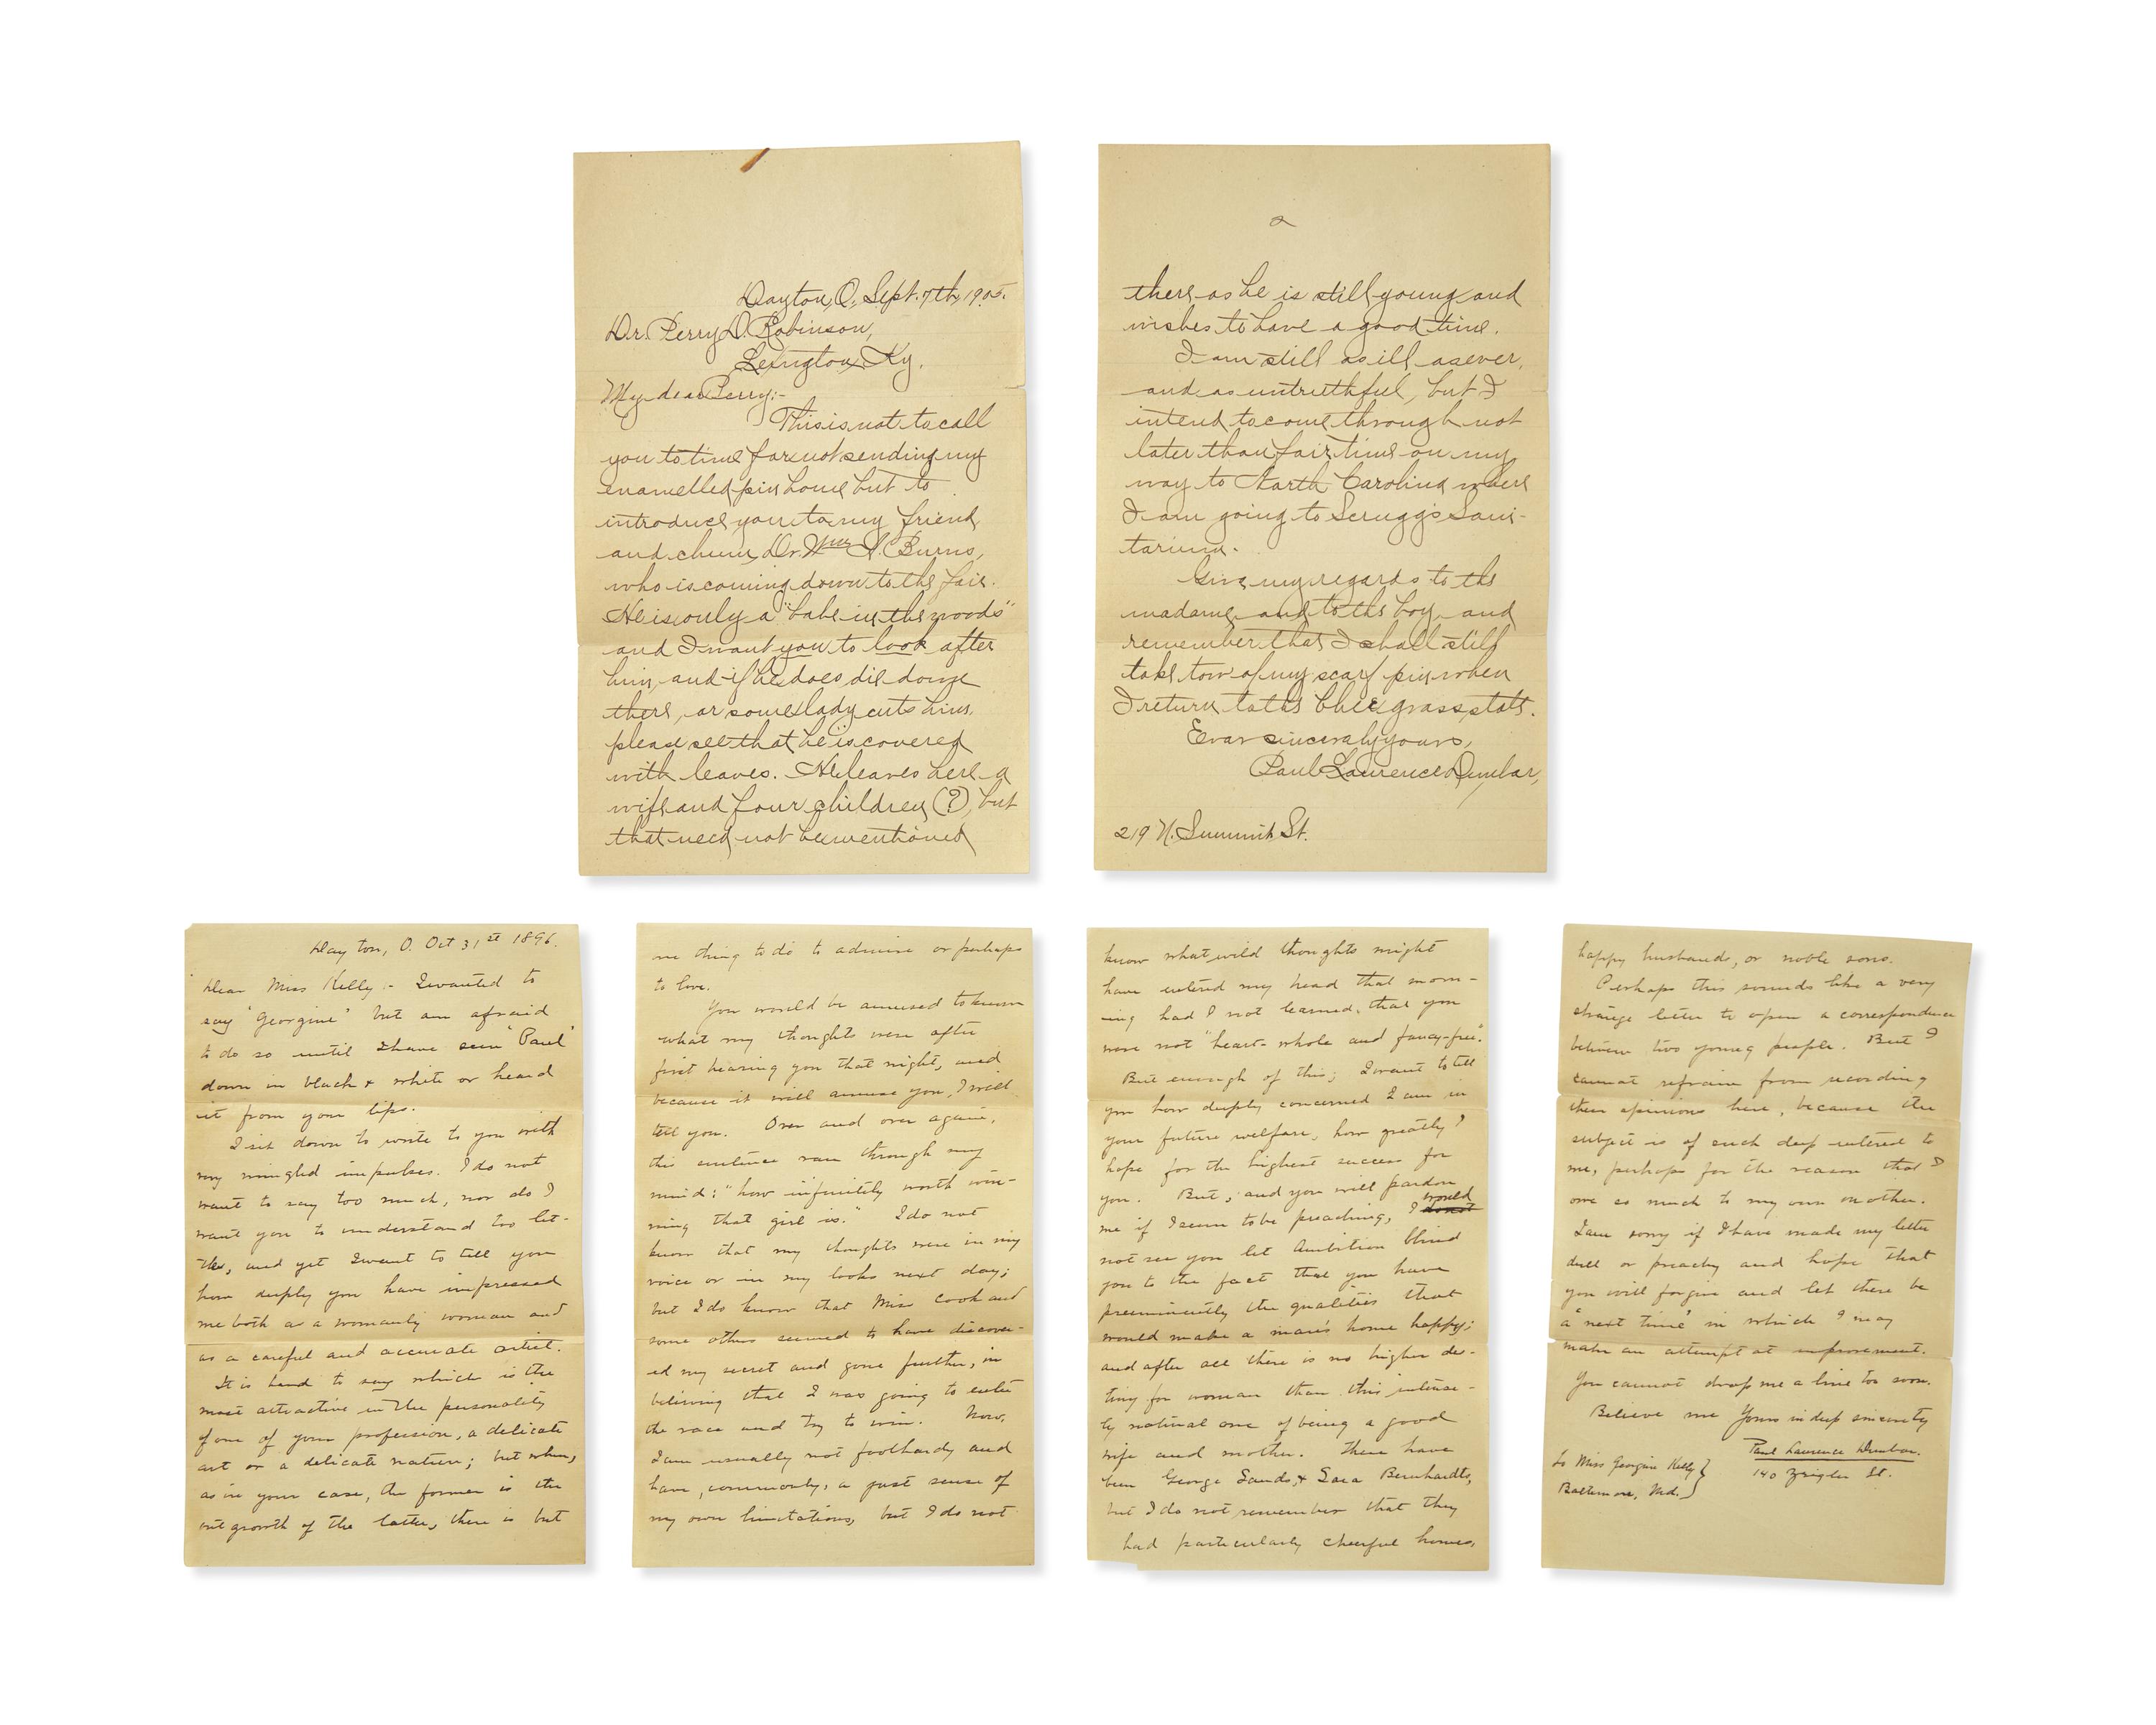 Dayton, O, Sept. 7th, 1905.
Dr. Perry D. Robinson,
Lexington, Ky.
My dear Perry:-
This is not to call
you to time for not sending my
enamelled pin home but to
introduce you to my friend
and chum, Dr. Wm I. Burns,
who is coming down to the fair.
He is only a "babe in the woods"
and I want you to look after
him, and if he does die down
there, or some lady cuts him,
please see that he is covered
with leaves. He leaves here a
wife and four children (?), but
that need not be mentioned
2
there, as he is still young and
wishes to have a good time.
I am still as ill as ever,
and as untruthful, but I
intend to come through not
later than fair time on my
way to North Carolina where
I am going to Scruggs Sani-
tarium.
Give my regards to the
madame, and to the boy, and
remember that I shall still
take tow of my scarf pin when
I return to the blue grass state.
Ever sincerely yours,
Paul Laurence Dunbar,
219 N. Summit St.
Dayton, O. Oct 31st 1896.
Dear Miss Kelly:- I wanted to
say "Georgine" but am afraid
to do so until I have seen "Paul"
down in black & white or heard
it from your lips.
I sit down to write to you with
very mingled impulses. I do not
want to say too much, nor do I
want you to understand too lit-
tle, and yet I want to tell you
how deeply you have impressed
me both as a womanly woman and
as a careful and accurate artist.
It is hard to say which is the
most attractive in the personality
of one of your profession, a delicate
art or a delicate nature; but when,
as in your case, the former is the
outgrowth of the latter, there is but
one thing to do to admire or perhaps
to love.
You would be amused to know
what my thoughts were after
first hearing you that night, and
because it will amuse you, I will
tell you. Over and over again,
this sentence ran through my
mind: "how infinitely worth win-
ning that girl is." I do not
know that my thoughts were in my
voice or in my looks next day;
but I do know that Miss Cook and
some others seemed to have discover-
ed my secret and gone further, in
believing that I was going to enter
the race and try to win. Now,
I am usually not foolhardy and
have, commonly, a just sense of
my own limitations, but I do not
know what wild thoughts might
have entered my head that morn-
ing had I not learned, that you
were not "heart-whole and fancy-free."
But enough of this; I want to tell
you how deeply concerned I am in
your future welfare, how greatly I
hope for the highest success for
you. But, and you will pardon
me if I seem to be preaching, I would
not see you let Ambition blind
you to the fact that you have
preeminently the qualities that
would make a man's home happy;
and after all there is no higher des-
tiny for woman than this intense-
ly natural one of being a good
wife and mother. There have
been George Sands, & Sara Bernhardts,
but I do not remember that they
had particularly cheerful homes,
happy husbands, or noble sons.
Perhaps this sounds like a very
strange letter to open a correspondence
between two young people. But I
cannot refrain from recording
these opinions here, because the
subject is of such deep interest to
me, perhaps for the reason that I
owe so much to my own mother.
I am sorry if I have made my letter
dull or preachy and hope that
you will forgive and let there be
a "next time" in which I may
make an attempt at improvement.
You cannot drop me a line too soon.
Believe me Yours in deep sincerity
Paul Laurence Dunbar.
140 Zeigler St.
To Miss Georgine Kelly}
Baltimore, Md.